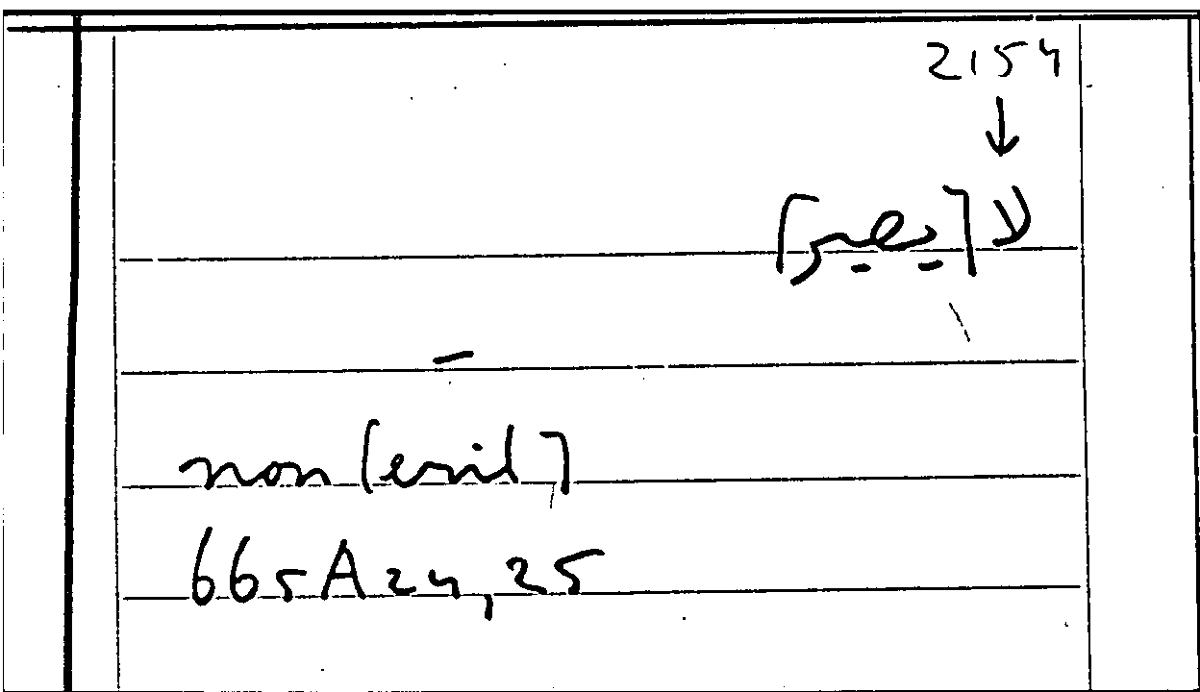 2154
↓
لا [يصير]
–
non [erit]
665A24,25